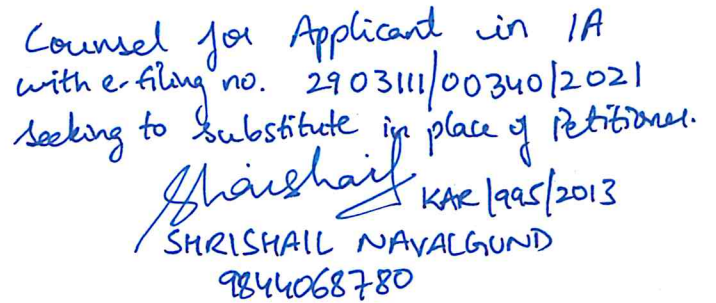 Counsel for Applicant in IA
with e-filing no. 2903111/00340/2021
seeking to substitute in place of Petitioner.
Shrishail KAR/995/2013
SHRISHAIL NAVALGUND
9844068780